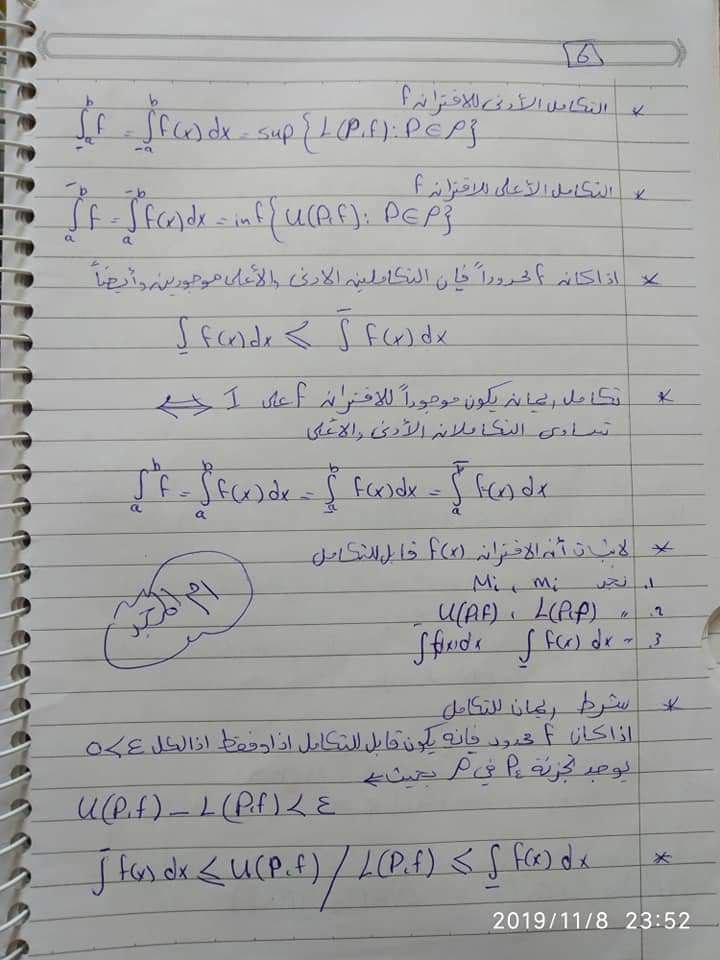 6
* التكامل الأدنى للاقتران f
∫_a^b f = ∫_a^b f(x) dx = sup { L(P,f) : P ∈ P }
* التكامل الأعلى للاقتران f
∫_a^b f = ∫_a^b f(x) dx = inf { U(P,f) : P ∈ P }
* اذا كان f محدوداً فإن التكاملين الادنى والأعلى موجودين وأيضاً
∫ f(x) dx ≤ ∫ f(x) dx
* تكامل ريمان يكون موجوداً للاقتران f على I ⟺
تساوى التكاملان الأدنى والاعلى
∫_a^b f = ∫_a^b f(x) dx = ∫_a^b f(x) dx = ∫_a^b f(x) dx
* لاثبات أن الاقتران f(x) قابل للتكامل
1. نجد mi ، Mi
2. " L(P,f) ، U(P,f)
3. " ∫ f(x) dx ∫ f(x) dx
* شرط ريمان للتكامل
اذا كان f محدود فإنه يكون قابل للتكامل اذا وفقط اذا لكل ε > 0
يوجد تجزئة Pε في P بحيث ←
U(P,f) − L(P,f) < ε
* ∫ f(x) dx ≤ U(P,f) / L(P,f) ≤ ∫ f(x) dx
2019/11/8 23:52